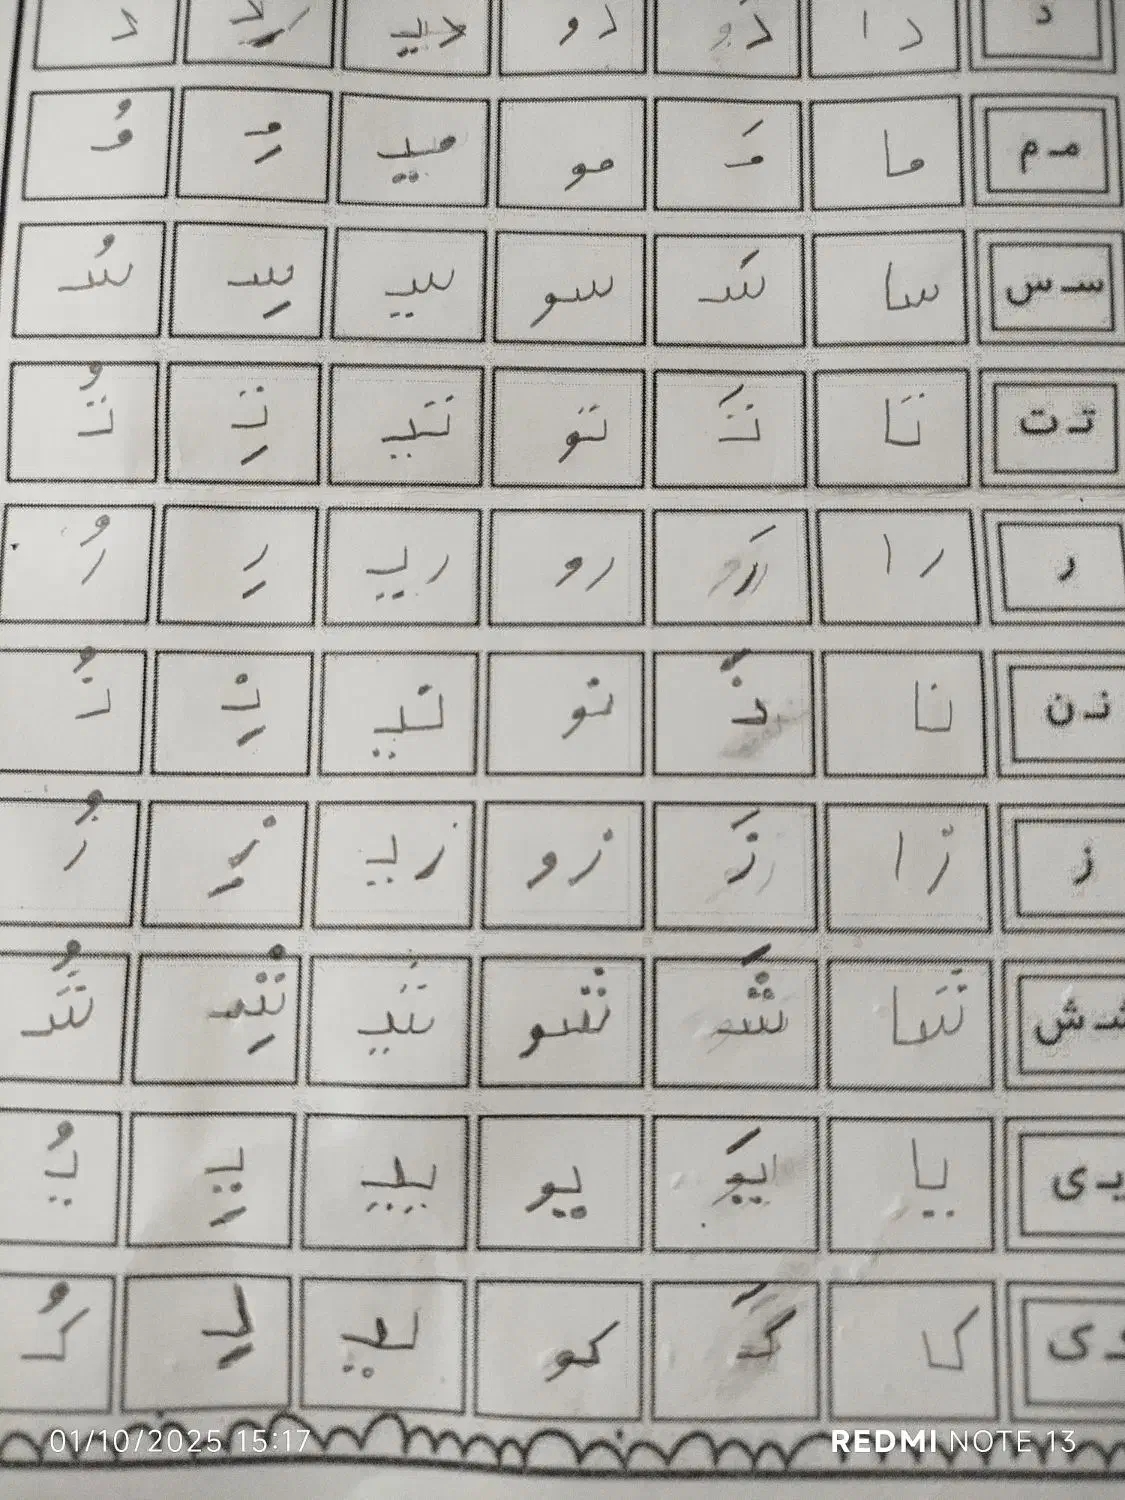 د دا دَ دو دیـ دِ د
مـ م ما مَـ مو میـ مِـ مُـ
سـ س سا سَـ سو سیـ سِـ سُـ
تـ ت تا تَـ تو تیـ تِـ تُـ
ر را رَ رو ریـ رِ رُ
نـ ن نا نَـ نو نیـ نِـ نُـ
ز زا زَ زو زیـ زِ زُ
شـ ش شا شَـ شو شیـ شِـ شُـ
یـ ی یا یَـ یو ییـ یِـ یُـ
ک کا کَـ کو کِـ کُـ
01/10/2025 15:17
REDMI NOTE 13